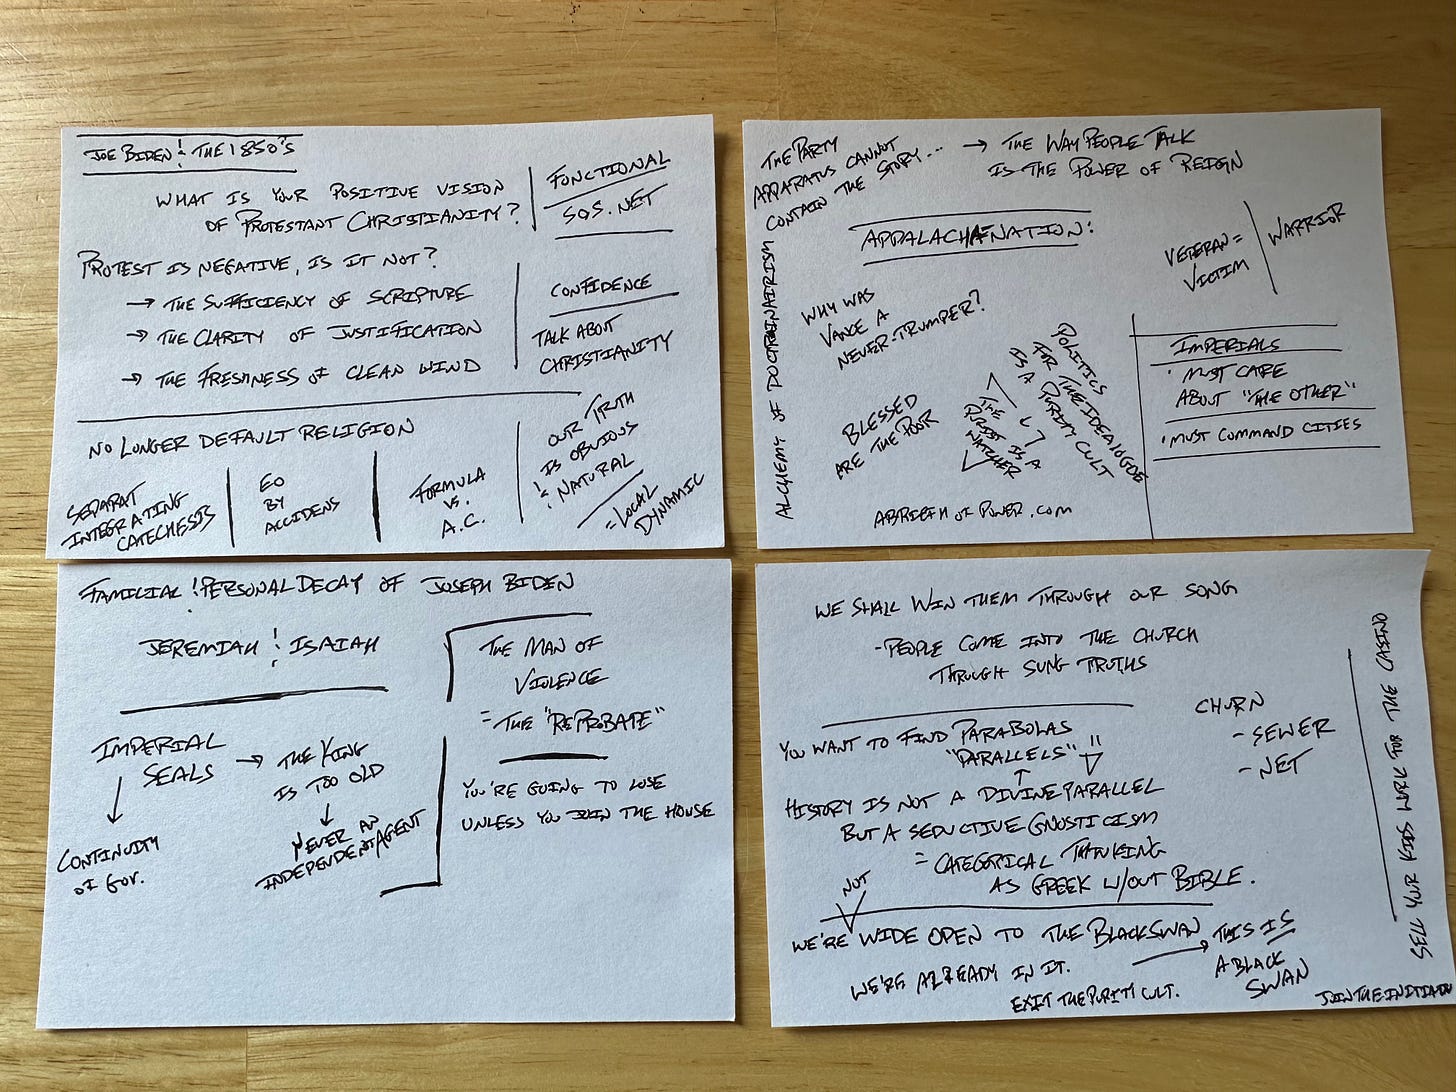 JOE BIDEN & THE 1850'S
WHAT IS YOUR POSITIVE VISION
OF PROTESTANT CHRISTIANITY?
FUNCTIONAL
SQS.NET
PROTEST IS NEGATIVE, IS IT NOT?
→ THE SUFFICIENCY OF SCRIPTURE
→ THE CLARITY OF JUSTIFICATION
→ THE FRESHNESS OF CLEAN WIND
CONFIDENCE
TALK ABOUT
CHRISTIANITY
NO LONGER DEFAULT RELIGION
SEPARAT
INTEGRATING
CATECHESIS
EO
BY
ACCIDENS
FORMULA
VS.
A.C.
OUR TRUTH
IS OBVIOUS
& NATURAL
= LOCAL
DYNAMIC
THE PARTY
APPARATUS CANNOT
CONTAIN THE STORY...
→ THE WAY PEOPLE TALK
IS THE POWER OF REIGN
ALCHEMY OF DOCTRINAIRISM
APPALACHANATION:
VETERAN =
VICTIM
WARRIOR
WHY WAS
VANCE A
NEVER-TRUMPER?
POLITICS
FOR THE IDEALOGUE
IS A
PURITY CULT
THE
PURIST IS A
WATCHER
BLESSED
ARE THE POOR
IMPERIALS
• MUST CARE
ABOUT "THE OTHER"
• MUST COMMAND CITIES
ABRIEFH OF POWER.COM
FAMILIAL & PERSONAL DECAY OF JOSEPH BIDEN
JEREMIAH & ISAIAH
IMPERIAL
SEALS
→ THE KING
IS TOO OLD
CONTINUITY
OF GOV.
NEVER AN
INDEPENDENT AGENT
THE MAN OF
VIOLENCE
= THE "REPROBATE"
YOU'RE GOING TO LOSE
UNLESS YOU JOIN THE HOUSE
WE SHALL WIN THEM THROUGH OUR SONG
- PEOPLE COME INTO THE CHURCH
THROUGH SUNG TRUTHS
CHURN
- SEWER
- NET
YOU WANT TO FIND PARABOLAS
"PARALLELS"
HISTORY IS NOT A DIVINE PARALLEL
BUT A SEDUCTIVE GNOSTICISM
= CATEGORICAL THINKING
AS GREEK W/OUT BIBLE.
NOT
WE'RE WIDE OPEN TO THE BLACK SWAN
WE'RE ALREADY IN IT.
→ THIS IS
A BLACK
SWAN
EXIT THE PURITY CULT.
SELL YOUR KIDS WORK FOR THE CASINO